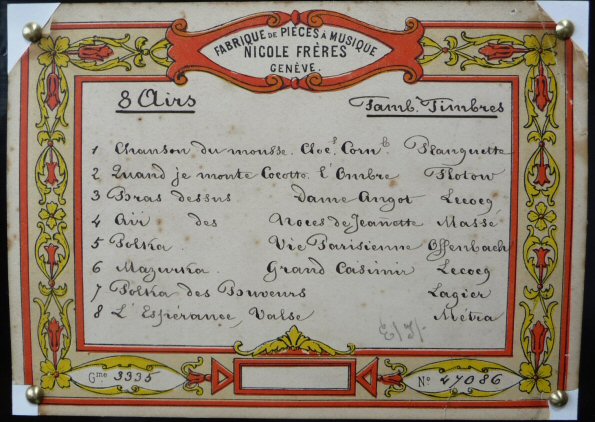 FABRIQUE DE PIÈCES À MUSIQUE
NICOLE FRÈRES
GENÈVE.
8 Airs Tamb. Timbres
1 Chanson du mousse. Cloes Cornb Planquette
2 Quand je monte Cocotte. l'Ombre Flotow
3 Bras dessus Dame Angot Lecocq
4 Air des Noces de Jeanette Massé
5 Polka. Vie Parisienne Offenbach
6 Mazurka. Grand Casimir Lecocq
7 Polka des Buveurs Lagier
8 L'Espérance, Valse Métra
Gme 3335 No 47086